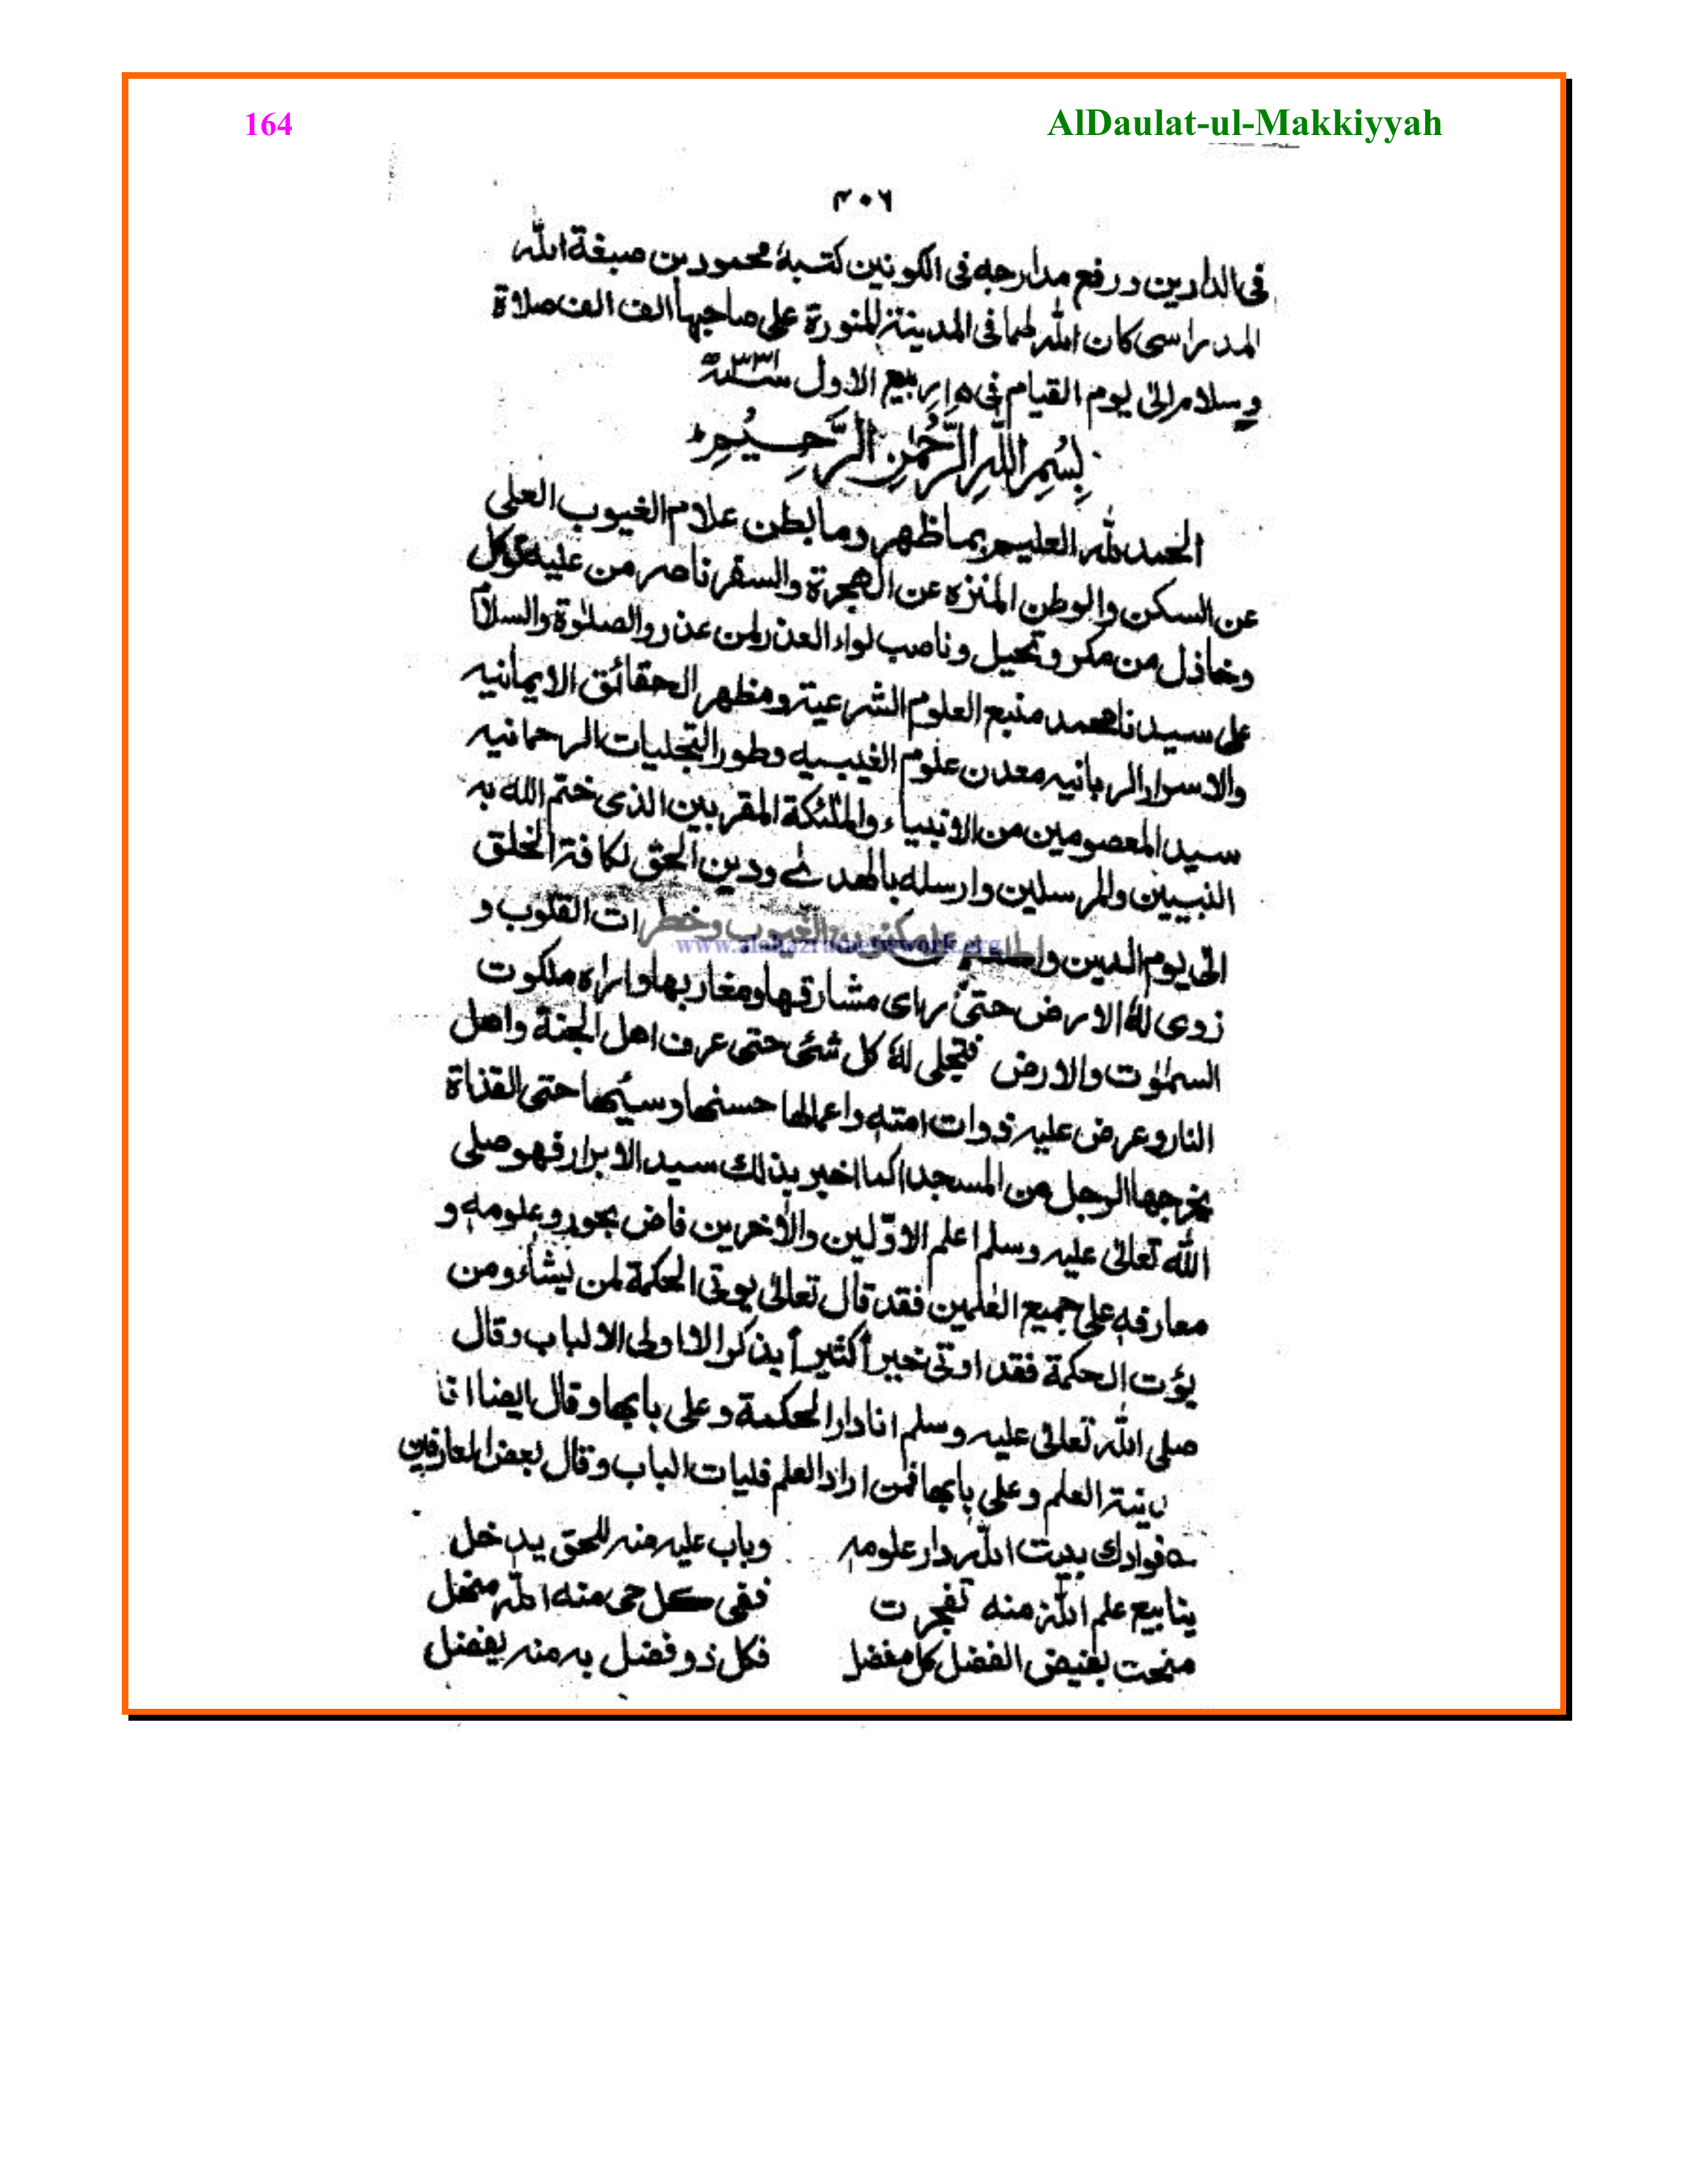 164
AlDaulat-ul-Makkiyyah
٣٠٦
فى الدارين ورفع مدارجه فى الكونين كتبهٗ محمود بن صبغة الله
المدراسى كان الله لهما فى المدينة المنورة على صاجها الف الف صلاة
وسلام الىٰ يوم القيام فى ١٥ ربيع الاول
بِسْمِ اللهِ الرَّحْمٰنِ الرَّحِيْمِ
الحمد لله العليم بما ظهر وما بطن علام الغيوب العلى
عن السكن والوطن المنزه عن الهجرة والسفر ناصر من عليه توكل
وخاذل من مكر وتحيل وناصب لواء الغدر لمن غدر والصلوٰة والسلام
على سيدنا محمد منبع العلوم الشرعية ومظهر الحقائق الايمانيه
والاسرار الربانيه معدن علوم الغيبيه وطور التجليات الرحمانيه
سيد المعصومين من الانبياء والملئكة المقربين الذى ختم الله به
النبيين والمرسلين وارسله بالهدىٰ ودين الحق لكافة الخلق
الى يوم الدين الغيوب وخطرات القلوب و
www.alahazratnetwork.org
زوى لهٗ الارض حتىٰ راى مشارقها ومغاربها واراه ملكوت
السمٰوٰت والارض فتجلى لهٗ كل شئى حتى عرف اهل الجنة واهل
النار وعرض عليه ذوات امته واعمالها حسنها وسيئها حتى القذاة
يخرجها الرجل من المسجد اكما اخبر بذلك سيد الابرار فهو صلى
الله تعالىٰ عليه وسلم اعلم الاوّلين والاٰخرين فاض بحور وعلومه و
معارفه على جميع العٰلمين فقد قال تعالىٰ يوتى الحكمة لمن يشاء ومن
يؤت الحكمة فقد اوتى خيراً كثيراً يذكر الا اولى الالباب وقال
صلى الله تعالىٰ عليه وسلم انا دار الحكمة وعلى بابها وقال ايضا انا
ينة العلم وعلى بابها فمن اراد العلم فليات الباب وقال بعض العارفين
فوادك بيت الله دار علومه وباب عليه منه للحق يدخل
ينابيع علم الله منه تفجرت ففى كل حى منه الله منهل
منحت بفيض الفضل كل مفضل فكل ذو فضل به منه يفضل